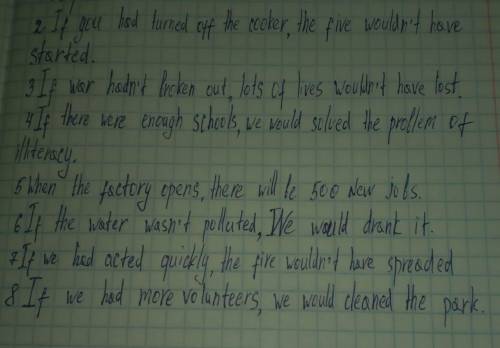 2 If you had turned off the cooker, the fire wouldn't have
started.
3 If war hadn't broken out, lots of lives wouldn't have lost.
4 If there were enough schools, we would solved the problem of
illiteracy.
5 When the factory opens, there will be 500 new jobs.
6 If the water wasn't polluted, We would drank it.
7 If we had acted quickly, the fire wouldn't have spreaded
8 If we had more volunteers, we would cleaned the park.